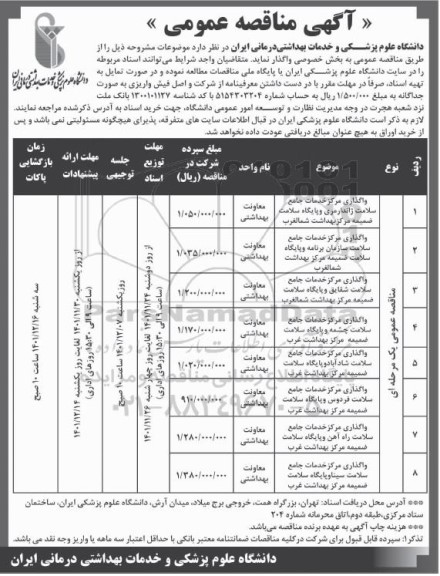 « آگهی مناقصه عمومی »
دانشگاه علوم پزشکی و خدمات بهداشتی‌درمانی ایران در نظر دارد موضوعات مشروحه ذیل را از
طریق مناقصه عمومی به بخش خصوصی واگذار نماید. متقاضیان واجد شرایط می‌توانند اسناد مربوطه
را در سایت دانشگاه علوم پزشکی ایران یا پایگاه ملی مناقصات مطالعه نموده و در صورت تمایل به
تهیه اسناد، صرفاً در مهلت مقرر با در دست داشتن معرفینامه از شرکت و اصل فیش واریزی به صورت
جداگانه به مبلغ ۱/۵۰۰/۰۰۰ ریال به حساب شماره ۵۱۵۴۳۰۳۲۰۴ با کد شناسه ۱۳۰۰۱۰۱۱۲۷ بانک ملت
نزد شعبه هجرت در وجه مدیریت نظارت و توسعه امور عمومی دانشگاه، جهت خرید اسناد به آدرس ذکرشده مراجعه نمایند.
لازم به ذکر است دانشگاه علوم پزشکی ایران در قبال اطلاعات سایت های متفرقه، پذیرای هیچگونه مسئولیتی نمی باشد و پس
از خرید اوراق به هیچ عنوان مبالغ دریافتی عودت داده نخواهد شد.
ردیف
نوع
موضوع
نام واحد
مبلغ سپرده شرکت در مناقصه (ریال)
مهلت توزیع اسناد
جلسه توجیهی
مهلت ارائه پیشنهادات
زمان بازگشایی پاکات
مناقصه عمومی یک مرحله ای
۱ واگذاری مرکزخدمات جامع سلامت ژاندارمری وپایگاه سلامت ضمیمه مرکزبهداشت شمالغرب معاونت بهداشتی ۱/۰۵۰/۰۰۰/۰۰۰
۲ واگذاری مرکزخدمات جامع سلامت سازمان برنامه وپایگاه سلامت ضمیمه مرکز بهداشت شمالغرب معاونت بهداشتی ۱/۰۳۵/۰۰۰/۰۰۰
۳ واگذاری مرکزخدمات جامع سلامت شقایق وپایگاه سلامت ضمیمه مرکز بهداشت غرب معاونت بهداشتی ۱/۲۰۰/۰۰۰/۰۰۰
۴ واگذاری مرکزخدمات جامع سلامت چشمه وپایگاه سلامت ضمیمه مرکز بهداشت غرب معاونت بهداشتی ۱/۱۷۰/۰۰۰/۰۰۰
۵ واگذاری مرکزخدمات جامع سلامت شادآباد وپایگاه سلامت ضمیمه مرکز بهداشت غرب معاونت بهداشتی ۱/۰۲۰/۰۰۰/۰۰۰
۶ واگذاری مرکزخدمات جامع سلامت فردوس وپایگاه سلامت ضمیمه مرکز بهداشت غرب معاونت بهداشتی ۹۱۰/۰۰۰/۰۰۰
۷ واگذاری مرکزخدمات جامع سلامت راه آهن وپایگاه سلامت ضمیمه مرکز بهداشت غرب معاونت بهداشتی ۱/۲۸۰/۰۰۰/۰۰۰
۸ واگذاری مرکزخدمات جامع سلامت سیناوپایگاه سلامت ضمیمه مرکز بهداشت غرب معاونت بهداشتی ۱/۳۸۰/۰۰۰/۰۰۰
(ساعت ۹ الی ۱۵:۳۰ روزهای اداری)
روزیکشنبه ۱۴۰۱/۱۲/۰۷ ساعت ۱۰ صبح
از روز یکشنبه ۱۴۰۱/۱۱/۳۰ لغایت روز یکشنبه ۱۴۰۱/۱۲/۱۴
(ساعت ۹ الی ۱۵:۳۰ روزهای اداری)
سه شنبه ۱۴۰۱/۱۲/۱۶ ساعت ۱۰ صبح
*** آدرس محل دریافت اسناد: تهران، بزرگراه همت، خروجی برج میلاد، میدان آرش، دانشگاه علوم پزشکی ایران، ساختمان
ستاد مرکزی،طبقه دوم،اتاق محرمانه شماره ۲۰۴
*** هزینه چاپ آگهی به عهده برنده مناقصه می‌باشد.
تذکر۱: سپرده قابل قبول برای شرکت درکلیه مناقصات ضمانتنامه معتبر بانکی با حداقل اعتبار سه ماهه یا واریز وجه نقد می باشد.
دانشگاه علوم پزشکی و خدمات بهداشتی درمانی ایران